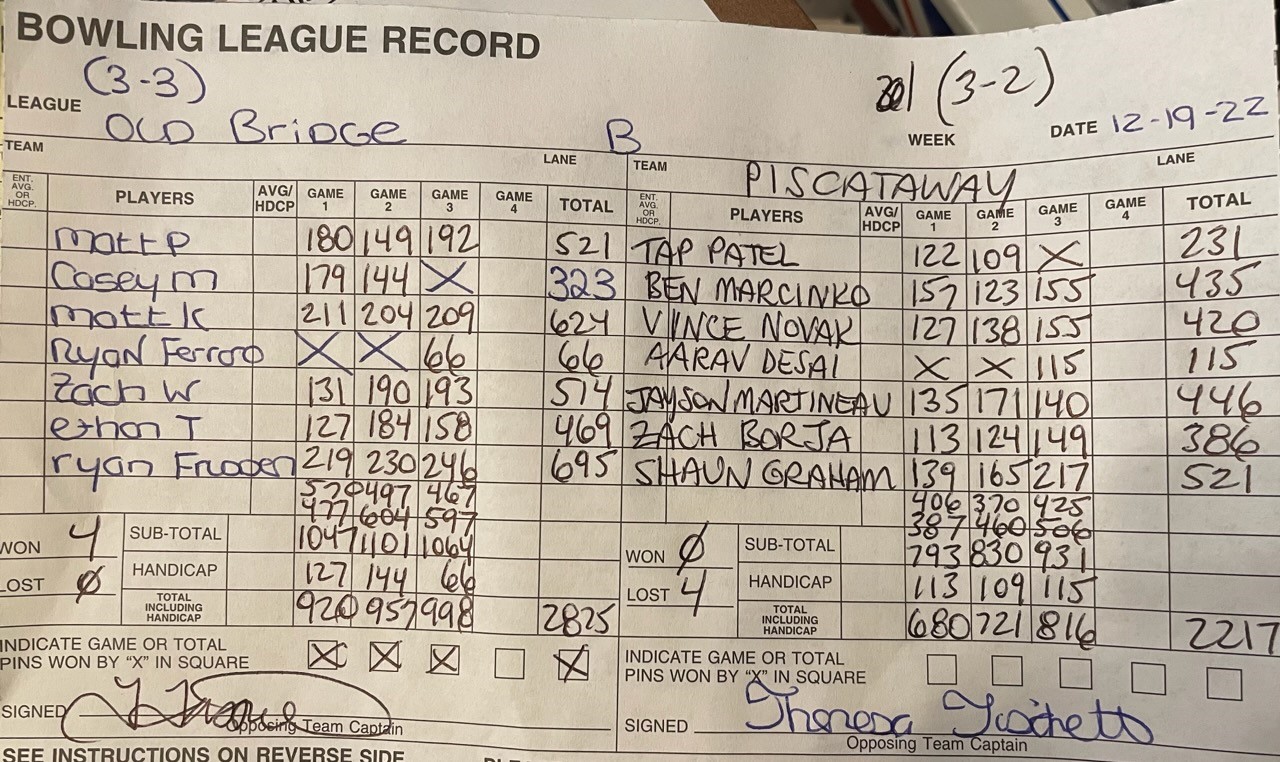 BOWLING LEAGUE RECORD
(3-3) (3-2)
LEAGUE OLD Bridge B WEEK DATE 12-19-22
TEAM LANE TEAM PISCATAWAY LANE
ENT. AVG. OR HDCP. PLAYERS AVG/HDCP GAME 1 GAME 2 GAME 3 GAME 4 TOTAL ENT. AVG. OR HDCP. PLAYERS AVG/HDCP GAME 1 GAME 2 GAME 3 GAME 4 TOTAL
Matt P 180 149 192 521 TAP PATEL 122 109 X 231
Casey M 179 144 X 323 BEN MARCINKO 157 123 155 435
Matt K 211 204 209 624 VINCE NOVAK 127 138 155 420
Ryan X X 66 66 AARAV DESAI X X 115 115
Zach W 131 190 193 514 JAYSON MARTINEAU 135 171 140 446
Ethan T 127 184 158 469 ZACH BORJA 113 124 149 386
ryan 219 230 246 695 SHAUN GRAHAM 139 165 217 521
570 497 467 406 370 425
477 604 597 387 460 506
WON 4 SUB-TOTAL 1047 1101 1064 WON 0 SUB-TOTAL 793 830 931
LOST 0 HANDICAP 127 144 66 LOST 4 HANDICAP 113 109 115
TOTAL INCLUDING HANDICAP 920 957 998 2875 TOTAL INCLUDING HANDICAP 680 721 816 2217
INDICATE GAME OR TOTAL PINS WON BY "X" IN SQUARE X X X X INDICATE GAME OR TOTAL PINS WON BY "X" IN SQUARE
SIGNED SIGNED Theresa
Opposing Team Captain Opposing Team Captain
SEE INSTRUCTIONS ON REVERSE SIDE